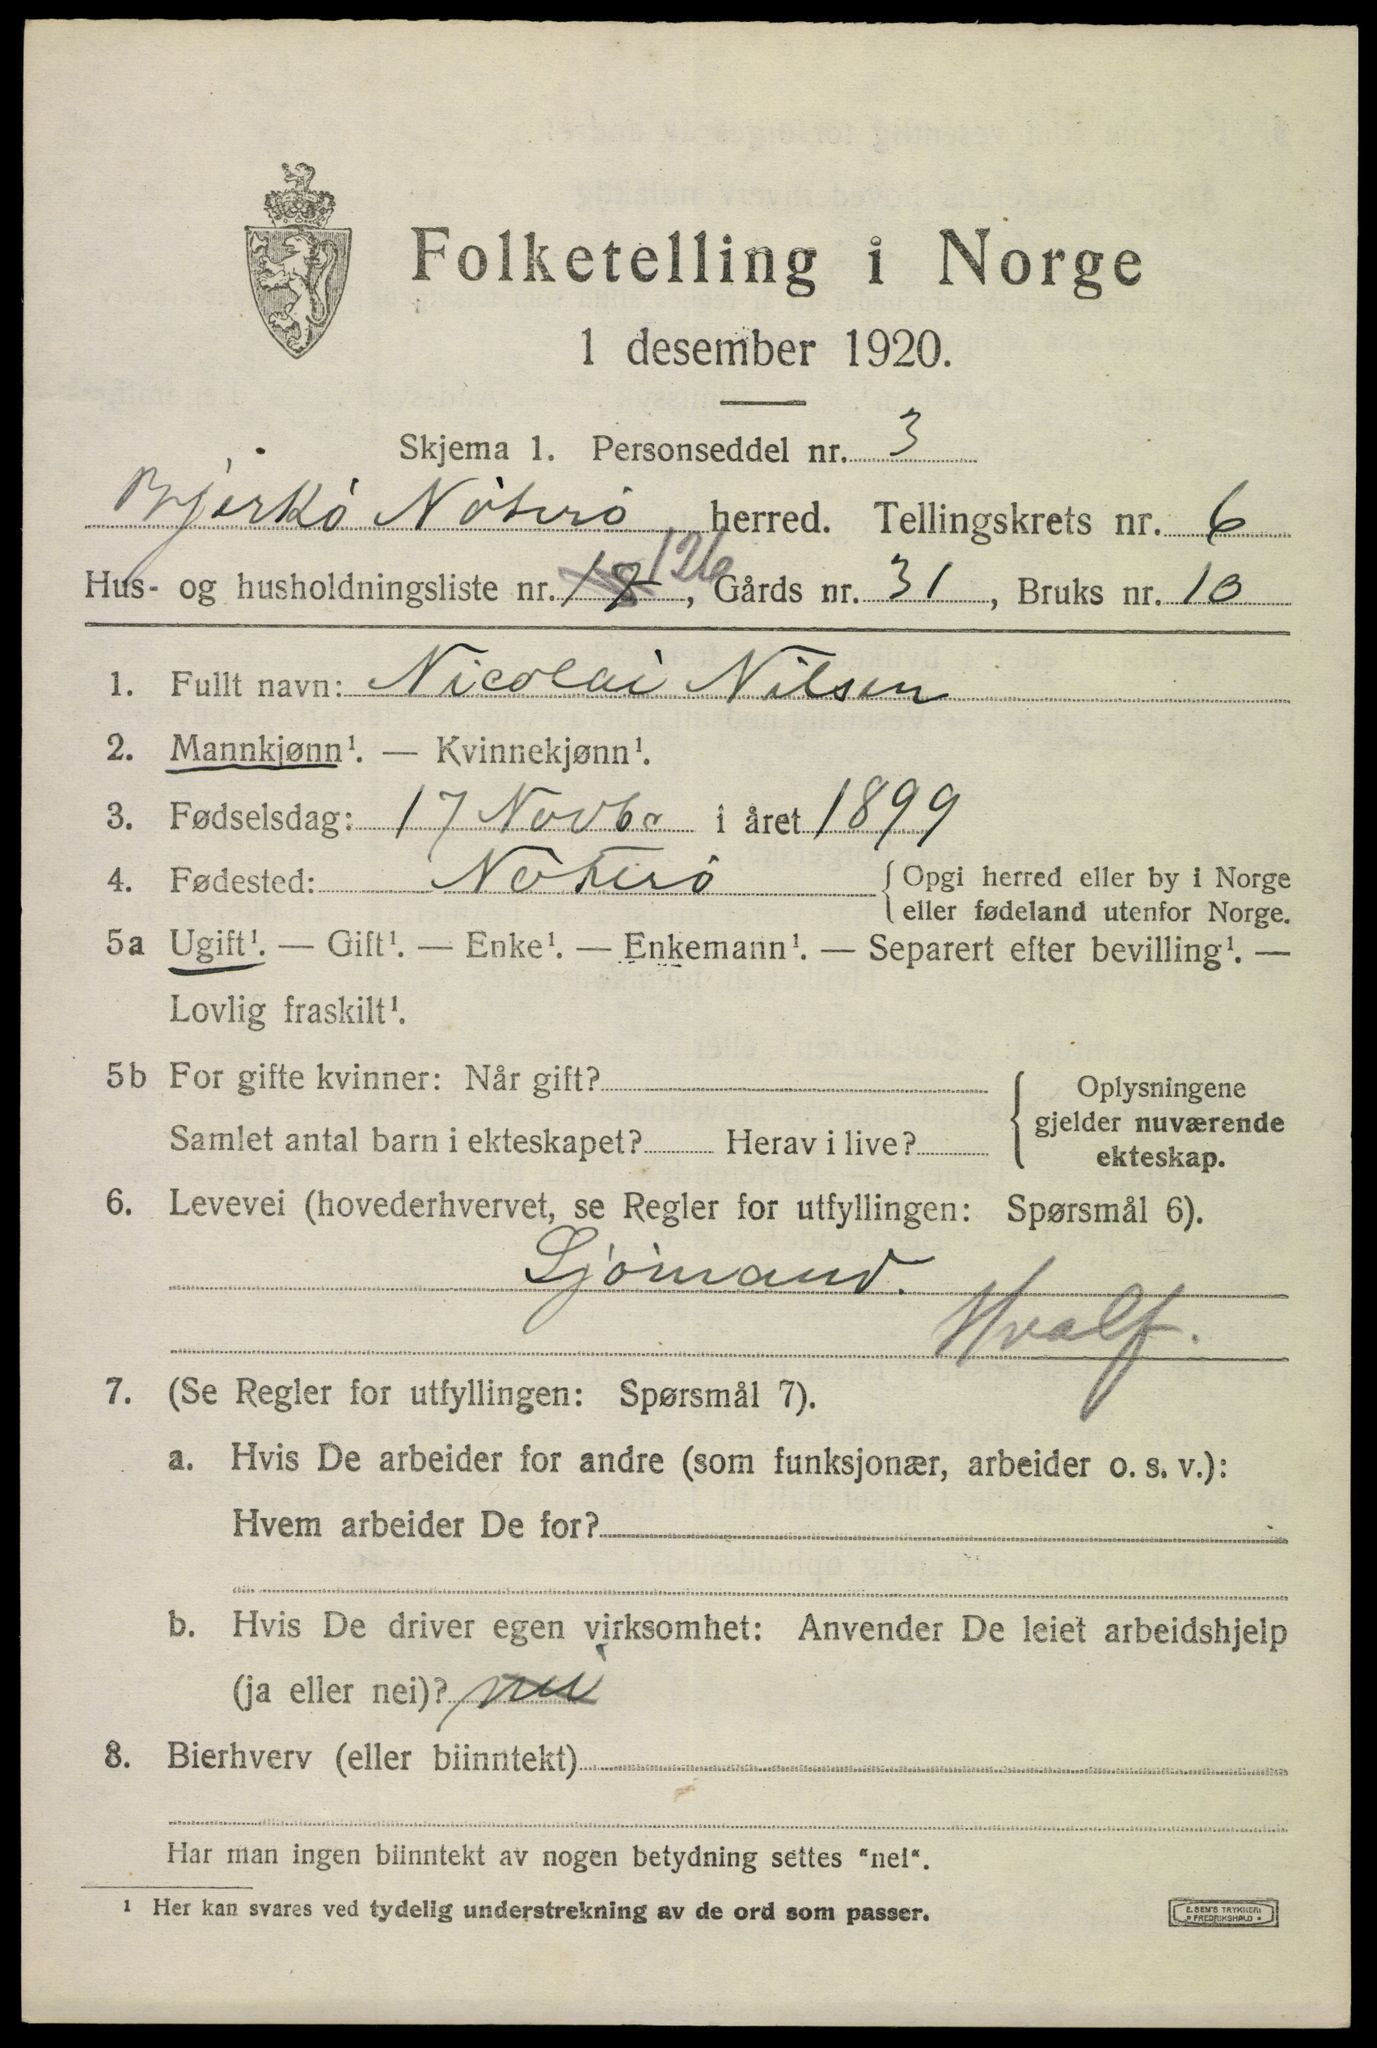 Folketelling i Norge
1 desember 1920.
Skjema 1. Personseddel nr. 3
Bjerkö Nöterö herred. Tellingskrets nr. 6
Hus- og husholdningsliste nr. 17 126, Gårds nr. 31, Bruks nr. 10
1. Fullt navn: Nicolai Nilsen
2. Mannkjønn¹. — Kvinnekjønn¹.
3. Fødselsdag: 17 Novbr i året 1899
4. Fødested: Nöterö { Opgi herred eller by i Norge
eller fødeland utenfor Norge.
5a Ugift¹. — Gift¹. — Enke¹. — Enkemann¹. — Separert efter bevilling¹. —
Lovlig fraskilt¹.
5b For gifte kvinner: Når gift? { Oplysningene
gjelder nuværende
Samlet antal barn i ekteskapet? Herav i live?
ekteskap.
6. Levevei (hovederhvervet, se Regler for utfyllingen: Spørsmål 6).
Sjömand.
Hvalf.
7. (Se Regler for utfyllingen: Spørsmål 7).
a. Hvis De arbeider for andre (som funksjonær, arbeider o. s. v.):
Hvem arbeider De for?
b. Hvis De driver egen virksomhet: Anvender De leiet arbeidshjelp
(ja eller nei)? nei
8. Bierhverv (eller biinntekt)
Har man ingen biinntekt av nogen betydning settes "nei".
¹ Her kan svares ved tydelig understrekning av de ord som passer.
E. SEM'S TRYKKERI
* FREDRIKSHALD *